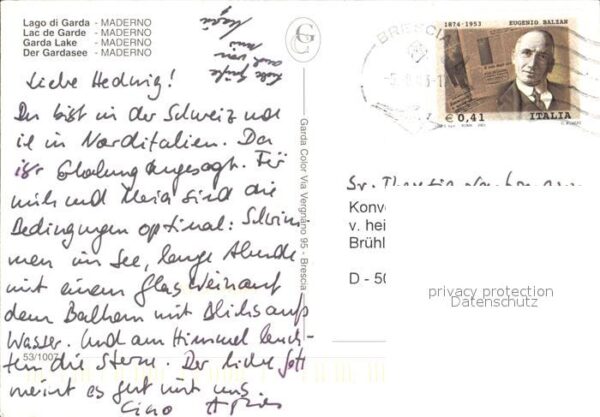 Lago di Garda - MADERNO
Lac de Garde - MADERNO
Garda Lake - MADERNO
Der Gardasee - MADERNO
Liebe Hedwig!
Du bist in der Schweiz und
ich in Norditalien. Da
ist Erholung angesagt. Für
mich und Maria sind die
Bedingungen optimal: Schwim-
men im See, lange Abende
mit einem Glas Wein auf
dem Balkon mit Blick aufs
Wasser. Und am Himmel leuch-
ten die Sterne. Der liebe Gott
meint es gut mit uns
Ciao
Liebe Grüße
auch von
mir
Maria
53/1007
Garda Color Via Vergnano 95 - Brescia
BRESCIA
1874 - 1953 EUGENIO BALZAN
€ 0,41 ITALIA
Sr.
Konv
v. hei
Brühl
D - 50
privacy protection
Datenschutz